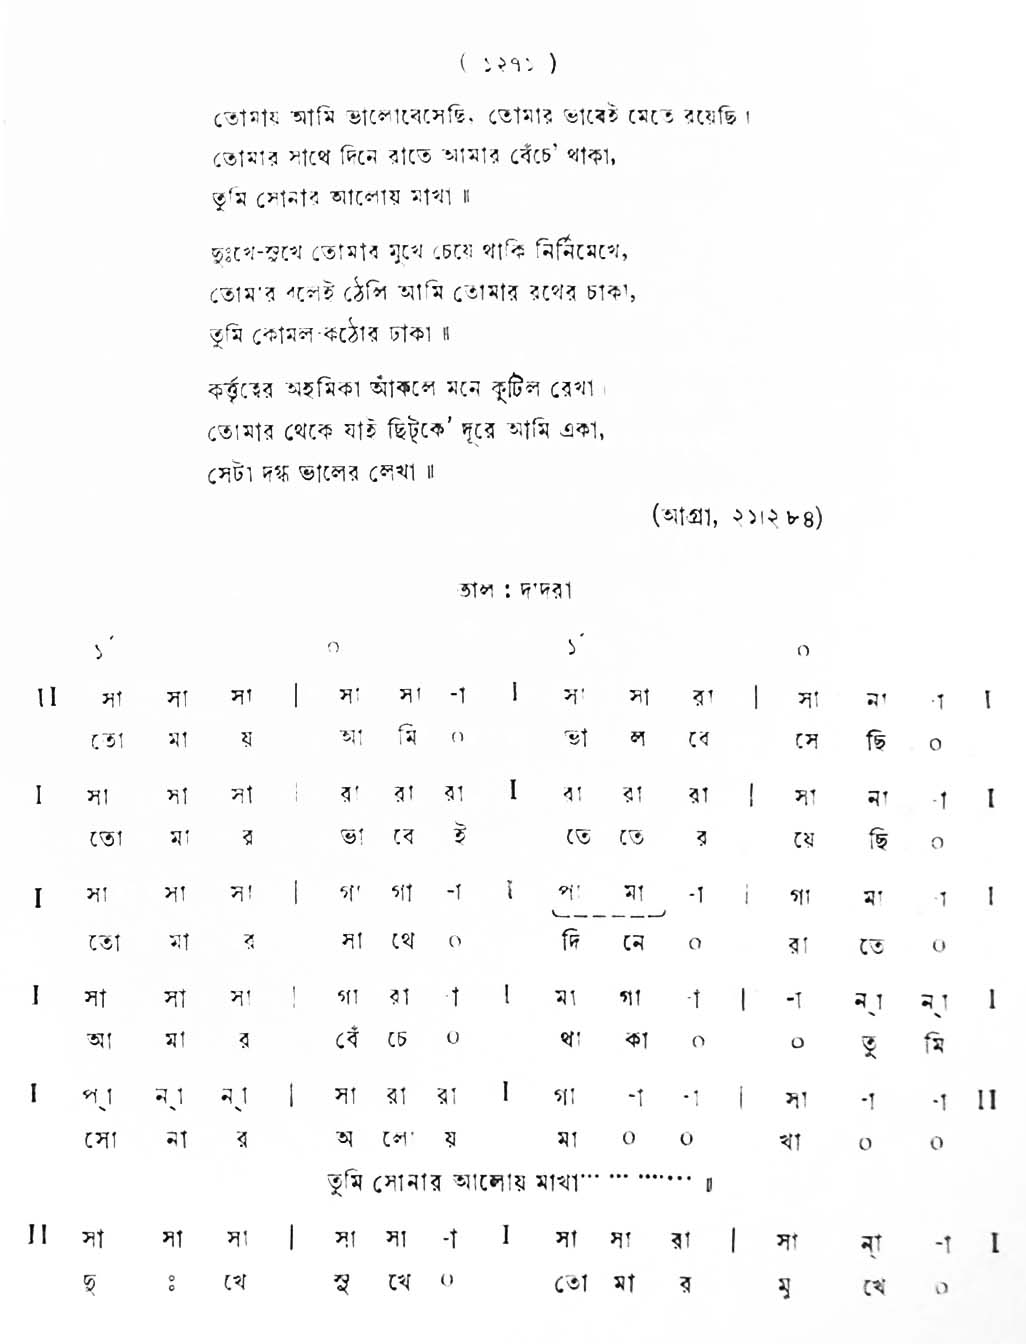 ( ১২৭১ )
তোমায় আমি ভালোবেসেছি, তোমার ভাবেই মেতে রয়েছি।
তোমার সাথে দিনে রাতে আমার বেঁচে' থাকা,
তুমি সোনার আলোয় মাখা॥
দুঃখে-সুখে তোমার মুখে চেয়ে থাকি নির্নিমেখে,
তোমার বলেই ঠেলি আমি তোমার রথের চাকা,
তুমি কোমল-কঠোর ঢাকা॥
কর্ত্তৃত্বের অহমিকা আঁকলে মনে কুটিল রেখা।
তোমার থেকে যাই ছিট্‌কে' দূরে আমি একা,
সেটা দগ্ধ ভালের লেখা॥
(আগ্রা, ২১।২৮৪)
তাল : দাদরা
১´ ০ ১´ ০
II সা সা সা | সা সা -া I সা সা রা | সা না -া I
তো মা য় আ মি ০ ভা ল বে সে ছি ০
I সা সা সা | রা রা রা I রা রা রা | সা না -া I
তো মা র ভা বে ই তে তে র য়ে ছি ০
I সা সা সা | গা গা -া I পা মা -া | গা মা -া I
তো মা র সা থে ০ দি নে ০ রা তে ০
I সা সা সা | গা রা -া I মা গা -া | -া ন্‌া ন্‌া I
আ মা র বেঁ চে ০ থা কা ০ ০ তু মি
I প্‌া ন্‌া ন্‌া | সা রা রা I গা -া -া | সা -া -া II
সো না র অ লো য় মা ০ ০ খা ০ ০
তুমি সোনার আলোয় মাখা··· ··· ······· ॥
II সা সা সা | সা সা -া I সা সা রা | সা ন্‌া -া I
দু ঃ খে সু খে ০ তো মা র মু খে ০